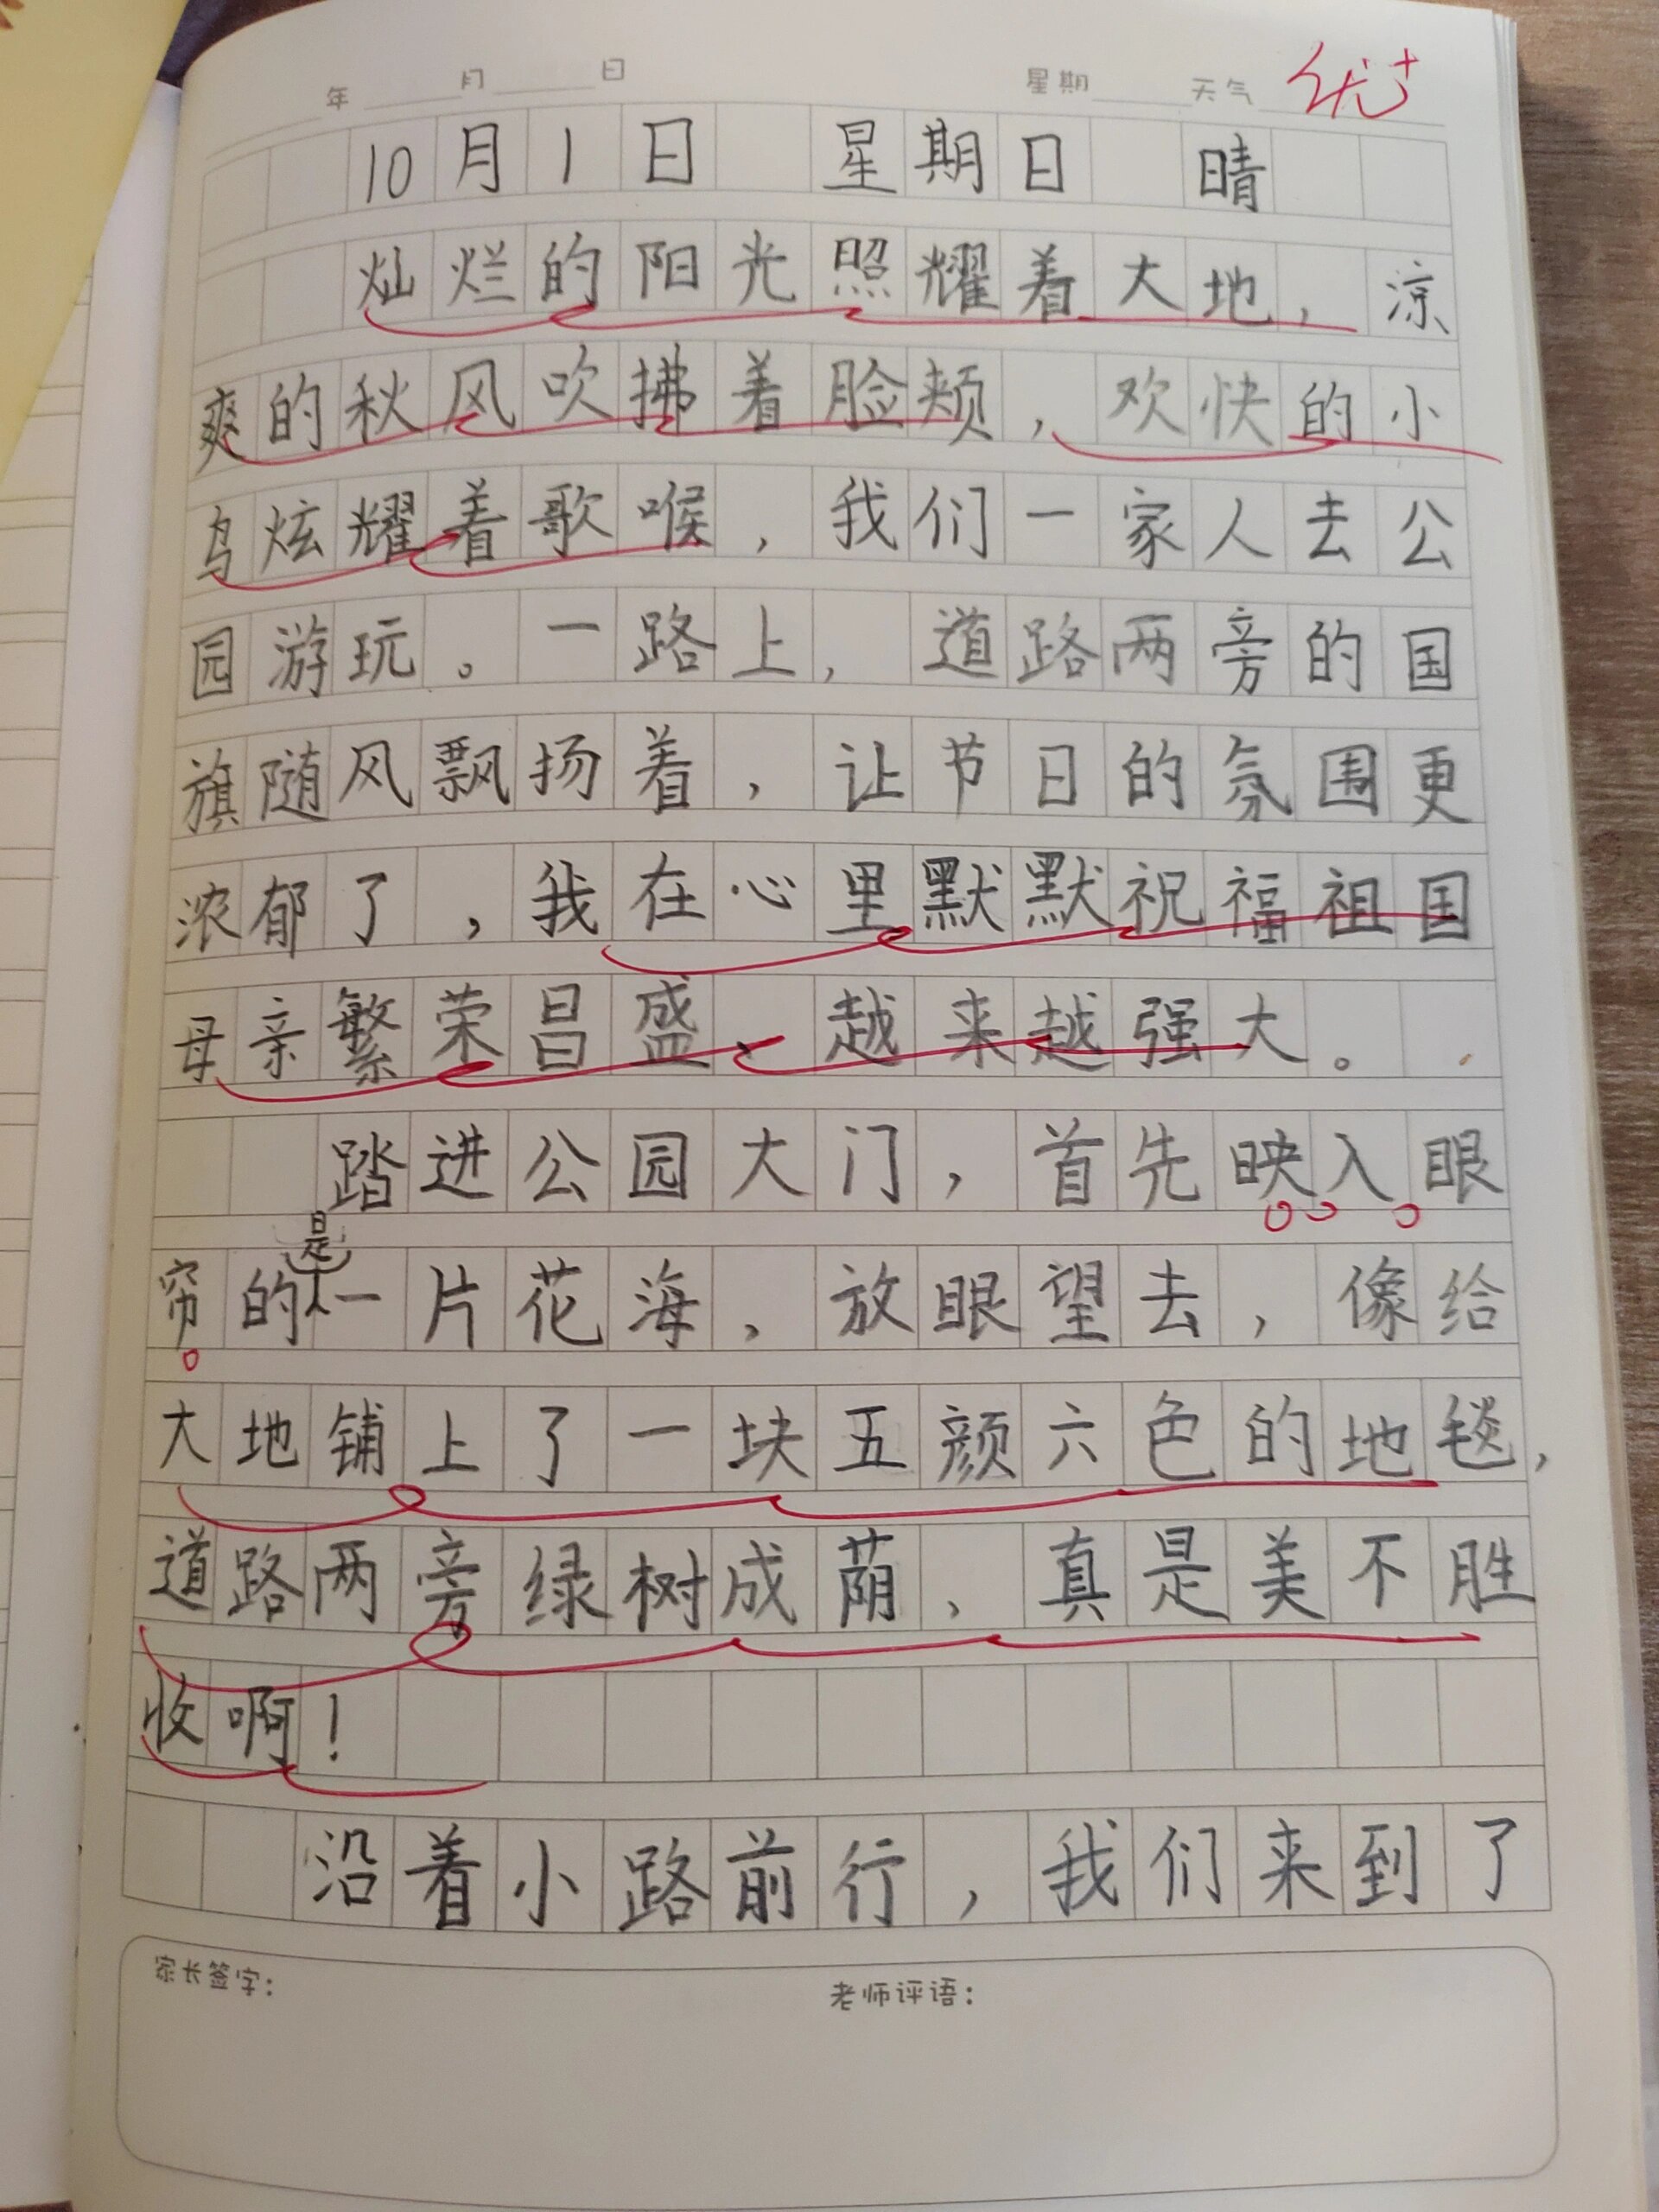 年 月 日 星期 天气 优+
10月1日 星期日 晴
灿烂的阳光照耀着大地，凉
爽的秋风吹拂着脸颊，欢快的小
鸟炫耀着歌喉，我们一家人去公
园游玩。一路上，道路两旁的国
旗随风飘扬着，让节日的氛围更
浓郁了，我在心里默默祝福祖国
母亲繁荣昌盛、越来越强大。
踏进公园大门，首先映入眼
帘的是一片花海，放眼望去，像给
大地铺上了一块五颜六色的地毯，
道路两旁绿树成荫，真是美不胜
收啊！
沿着小路前行，我们来到了
家长签字： 老师评语：